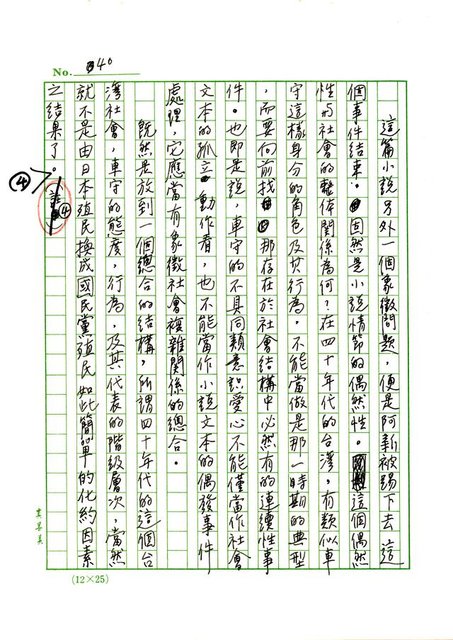 No. 340
這篇小說另外一個象徵問題,便是阿新被踢下去這
個事件結束。固然是小說情節的偶然性。這個偶然
性的社會的整體關係為何?在四十年代的台灣,有類似車
守這樣身分的角色及其行為。不能當做是那一時期的典型
,而要向前找那存在於社會結構中必然有的連續性事
件。也即是說,車守的不具同類意識愛心不能僅當作社會
文本的孤立動作看,也不能當作小說文本的偶發事件
處理,它應當有象徵社會複雜關係的總合。
既然是放到一個總合的結構,所謂四十年代的這個台
灣社會,車守的態度,行為,及其代表的階級層次,當然
就不是由日本殖民換成國民黨殖民如此簡單的化約因素
之結果了。
④
④
(12×25)